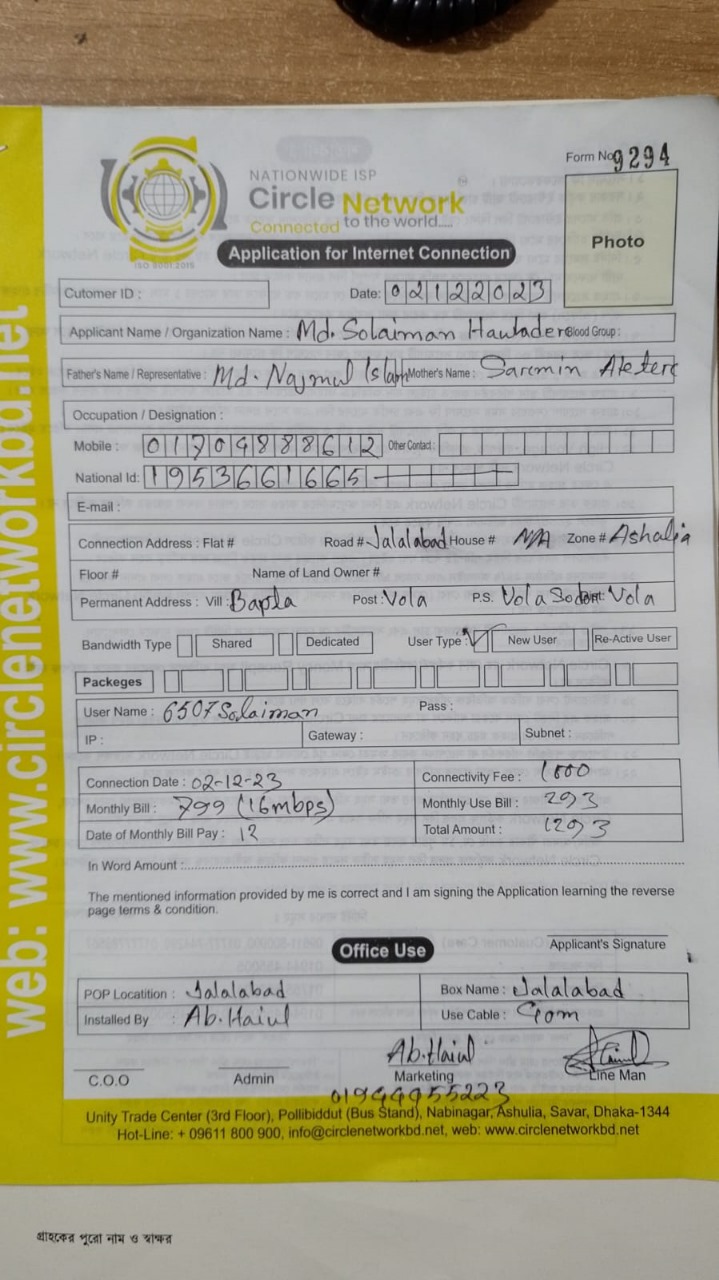 Form No 9294
NATIONWIDE ISP
Circle Network
Connected to the world....
ISO 9001:2015
Application for Internet Connection
Photo
Cutomer ID :
Date: 02122023
Applicant Name / Organization Name : Md. Solaiman Hawlader Blood Group :
Father's Name / Representative : Md. Najmul Islam Mother's Name : Sarmin Akter
Occupation / Designation :
Mobile : 01704888612 Other Contact :
National Id: 1953661665
E-mail :
Connection Address : Flat # Road # Jalalabad House # N/A Zone # Ashulia
Floor # Name of Land Owner #
Permanent Address : Vill : Bapta Post : Vola P.S. Vola Sodor Dist: Vola
Bandwidth Type Shared Dedicated User Type : New User Re-Active User
Packeges
User Name : 6507Solaiman Pass :
IP : Gateway : Subnet :
Connection Date : 02-12-23 Connectivity Fee : 1000
Monthly Bill : 799 (16mbps) Monthly Use Bill : 293
Date of Monthly Bill Pay : 12 Total Amount : 1293
In Word Amount :
The mentioned information provided by me is correct and I am signing the Application learning the reverse
page terms & condition.
Applicant's Signature
Office Use
POP Locatition : Jalalabad Box Name : Jalalabad
Installed By : Ab. Haiul Use Cable :
Ab. Haiul
C.O.O Admin Marketing Line Man
01944955223
Unity Trade Center (3rd Floor), Pollibiddut (Bus Stand), Nabinagar, Ashulia, Savar, Dhaka-1344
Hot-Line: + 09611 800 900, info@circlenetworkbd.net, web: www.circlenetworkbd.net
web: www.circlenetworkbd.net
গ্রাহকের পুরো নাম ও স্বাক্ষর